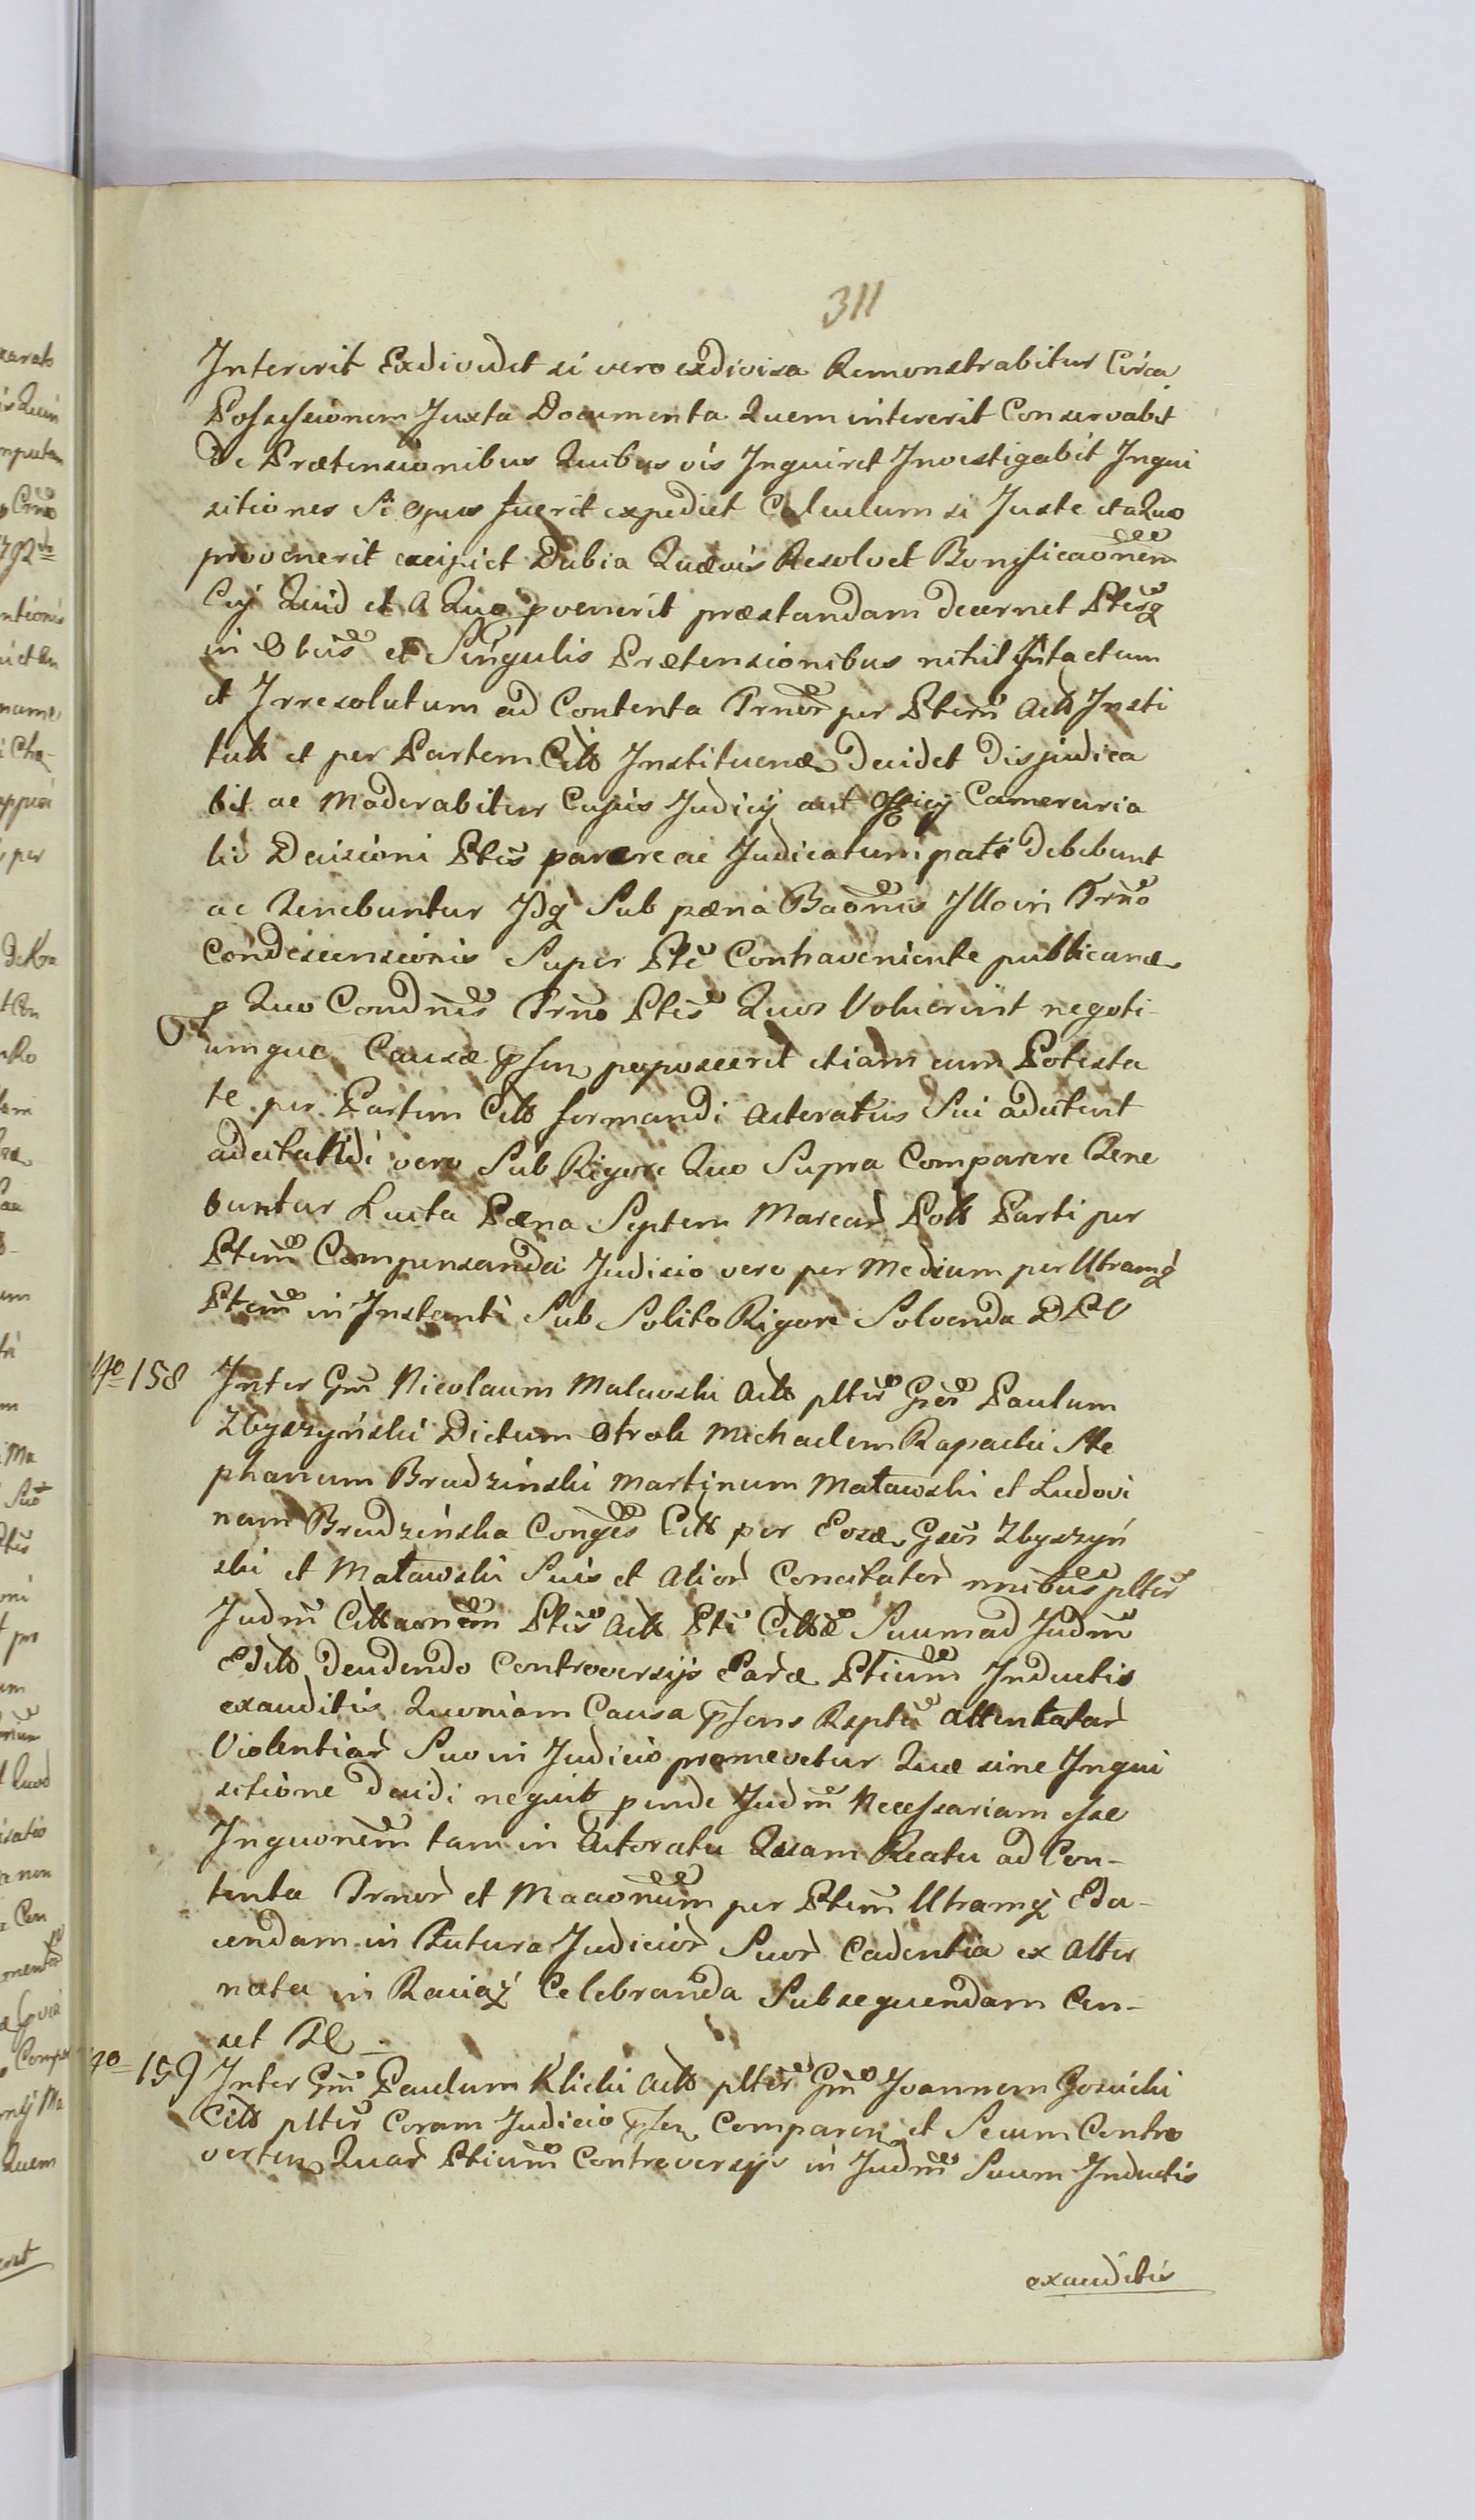 311
Intererit Exdividet si vero exdivisa Remonstrabitur Circa
Possessionem Juxta Documenta Quem intererit Conservabit
De Prætensionibus Quibus vis Inquiret Investigabit Inqui
sitiones Si Opus fuerit expediet Calculum si Juste ita Quo
provenerit excipiet Dubia Quævis Resolvet Bonificaonem
Cuj Quid et A Quo pvenerit præstandam decernet Ptesq
in Obus et Singulis Prætensionibus nihil Intactum
et Irresolutum ad Contenta Trnor per Ptem Actt Insti
tutt et per Partem Citt Instituenæ Decidet Disjudica
bit ac Moderabitur Cujus Judicij aut Officij Cameraria
lis Decisioni Ptes parere ac Judicatum pati Debebunt
ac Tenebuntur Idq Sub pæna Baonis Illo in Trno
Condescensionis Super Pte Contraveniente publicanæ
p Quo Condnis Trno Ptes Quos Voluerint negoti-
umque Causæ pſen poposcerit etiam cum Potesta
te per Partem Citt formandi Actoratus Sui adcitent
adcitatidi vero Sub Rigore Quo Supra Comparere Tene
buntur Lucta Pæna Septem Marcar Poll Parti per
Ptem Compensanda Judicio vero per Medium per Utramq
Ptem in Instanti Sub Solito Rigore Solvenda DLV
No 158 Inter Gm Nicolaum Malawski Actt pltes Gsos Paulum
Zbyszyński Dictum Otrok Michaelem Rapacki Ste
phanum Brudzinski Martinum Matawski et Ludovi
nam Brudzińska Conges Citt per Eosæ Gsos Zbyszyń
ski et Matawski Suis et Alior Concitator nnibus pltes
Judm Cittaonem Ptis Actt Pti Cittæ Suum ad Judm
Edits Dendendo Controversijs Paræ Ptium Inductis
exauditis Quoniam Causa pſens Rsptu Attentatar
Violentiar Suo in Judicio promovetur Quæ sine Inqui
sitione Decidi nequit pinde Judm Necessariam esse
Inquonem tam in Actoratu Quam Reatu ad Con-
tenta Trnor et Macaonum per Ptem Utramq Edu-
cendam in Futura Judicior Suor Cadentia ex Alter
nata in Raciąż Celebranda Subsequendam Cen-
set DL
No 159 Inter Gm Paulum Klicki Actt pltes Gm Joannem Gosicki
Citt pltes Coram Judicio pſen Comparen et Secum Contro
verten Quar Ptium Controversijs in Judm Suum Inductis
exauditis